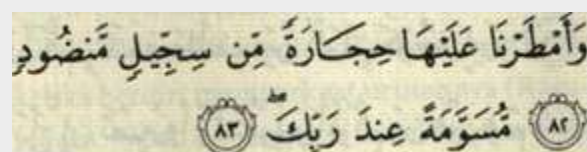 وَأَمْطَرْنَا عَلَيْهَا حِجَارَةً مِّن سِجِّيلٍ مَّنضُودٍ
٨٢ مُّسَوَّمَةً عِندَ رَبِّكَ ۖ ٨٣